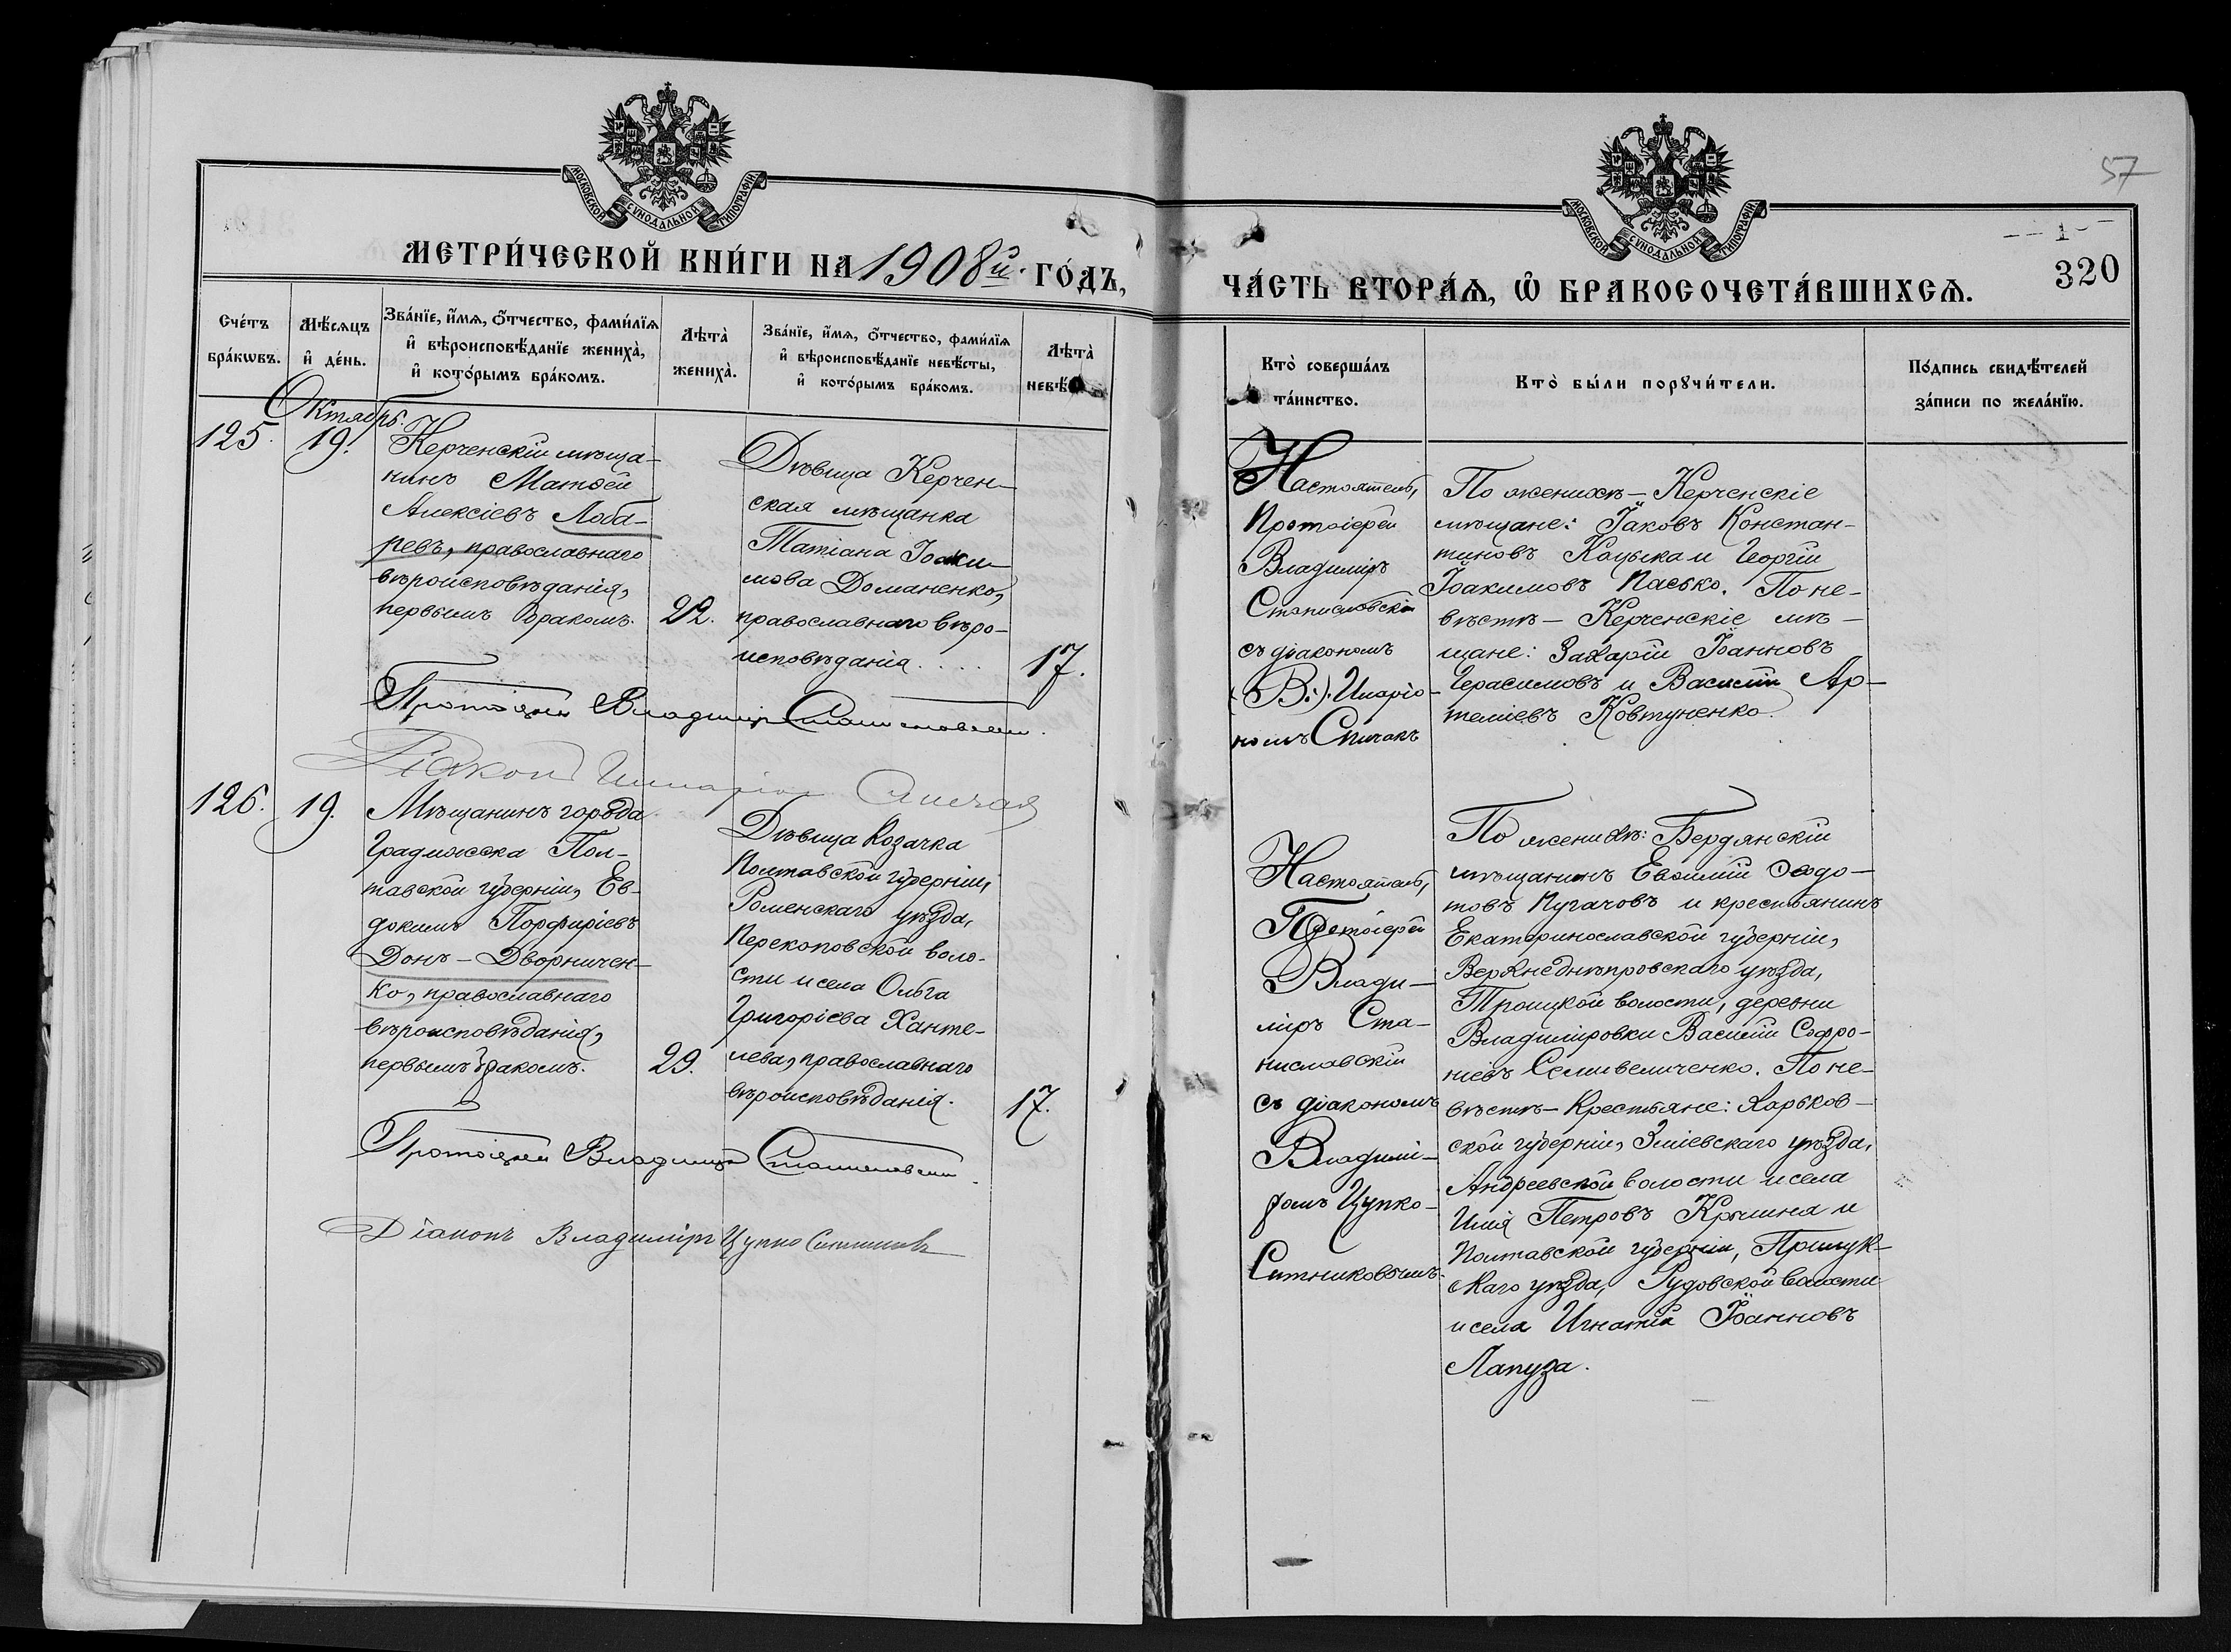 МОСКОВСКОЙ СУНОДАЛЬНОЙ ТИПОГРАФІИ
МЕТРИ́ЧЕСКОЙ КНИ́ГИ НА 1908й ГО́ДЪ,
Сче́тъ бра́кωвъ.
Мѣ́сяцъ и҆ де́нь.
Зва́нїе, и҆́мѧ, ѻ҆́тчество, фами́лїѧ
и҆ вѣроисповѣ́данїе жениха̀,
и҆ кото́рымъ бра́комъ.
Лѣта̀
жениха̀.
Зва́нїе, и҆́мѧ, ѻ҆́тчество, фами́лїѧ
и҆ вѣроисповѣ́данїе невѣ́сты,
и҆ кото́рымъ бра́комъ.
Лѣта̀
невѣ́
Октябрь.
125.
19.
Керченскій мѣща-
нинъ Матѳей
Алексіевъ Лоба-
ревъ, православнаго
вѣроисповѣданія,
первымъ бракомъ.
22.
Дѣвица Керчен-
ская мѣщанка
Татіана Іоаки-
мова Доманенко,
православнаго вѣро-
исповѣданія....
17.
Протоіерей Владимір Станиславскій.
Діаконъ Иларіон Спичак
126.
19.
Мѣщанинъ города
Градижска Пол-
тавской губерніи, Ев-
докимъ Порфиріевъ
Донъ-Дворничен-
ко, православнаго
вѣроисповѣданія,
первымъ бракомъ.
29.
Дѣвица козачка
Полтавской губерніи,
Роменскаго уѣзда,
Перекоповской воло-
сти и села Ольга
Григорієва Ханте-
лева, православнаго
вѣроисповѣданія.
17.
Протоіерей Владимір Станиславскій.
Діаконъ Владиміръ Цупко Ситниковъ
57
МОСКОВСКОЙ СУНОДАЛЬНОЙ ТИПОГРАФІИ
320
ЧА́СТЬ ВТОРА́Ѧ, Ѡ҆ БРАКОСОЧЕТА́ВШИХСѦ.
Кто̀ соверша́лъ
та́инство.
Кто̀ бы́ли порꙋчи́тели.
По́дпись свидѣ́телей
за́писи по жела́нїю.
Настоятель,
Протоіерей
Владиміръ
Станиславскій
съ діакономъ
(В:). Иларіо-
номъ Спичакъ
По женихѣ - Керченскіе
мѣщане: Іаковъ Констан-
тиновъ Кацыка и Георгій
Іоакимовъ Пасько. По не-
вѣстѣ - Керченскіе мѣ-
щане: Захарій Іоанновъ
Герасимовъ и Василій Ар-
теміевъ Ковтуненко.
Настоятель,
Протоіерей
Влади-
міръ Ста-
ниславскій
съ діакономъ
Владимі-
ромъ Цупко-
Ситниковымъ.
По женихѣ: Бердянскій
мѣщанинъ Евѳимій Ѳедо-
товъ Пугачовъ и крестьянинъ
Екатеринославской губерніи,
Верхнеднѣпровскаго уѣзда,
Троицкой волости, деревни
Владиміровки Василій Софро-
ніевъ Селивеличенко. По не-
вѣстѣ - Крестьяне: Харьков-
ской губерніи, Зміевскаго уѣзда,
Андреевской волости и села
Илія Петровъ Крылина и
Полтавской губерніи, Прилук-
скаго уѣзда, Рудовской волости
и села Игнатій Іоанновъ
Лапуза.